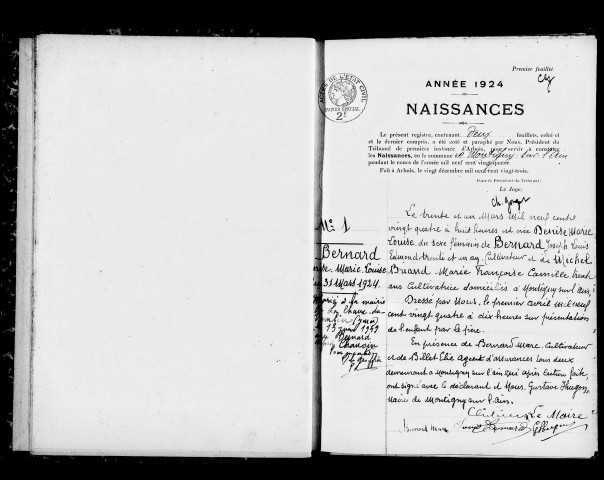 Premier feuillet.
ACTES DE L'ETAT CIVIL
PAPIER SPECIAL
2F
ANNÉE 1924
NAISSANCES
Le présent registre, contenant Deux feuillets, celui-ci
et le dernier compris, a été coté et paraphé par Nous, Président du
Tribunal de première instance d'Arbois, pour servir à constater
les Naissances, en la commune de Montigny-sur-l'Ain
pendant le cours de l'année mil neuf cent vingt-quatre
Fait à Arbois, le vingt décembre mil neuf cent vingt-trois.
Pour le Président du Tribunal:
Le Juge,
N: 1
Bernard
Marie Louise
31 Mars 1924.
à la mairie
Le trente et un Mars mil neuf cent
vingt quatre à huit heures est née Denise Marie
Louise du sexe féminin de Bernard Joseph Louis
Edmond trente et un ans Cultivateur et de Michel
Briard Marie Françoise Camille trente
ans Cultivatrice domiciliés à Montigny sur l'Ain,
Dressé par Nous, le premier avril mil neuf
cent vingt quatre à dix heures sur présentation
de l'enfant par le père.
En présence de Bernard Marc Cultivateur
et de Billet Elie Agent d'assurances tous deux
demeurant à Montigny sur l'ain qui après lecture faite
ont signé avec le déclarant et Nous, Gustave Hugon
Maire de Montigny sur l'Ain.
Le Maire
Bernard Marc